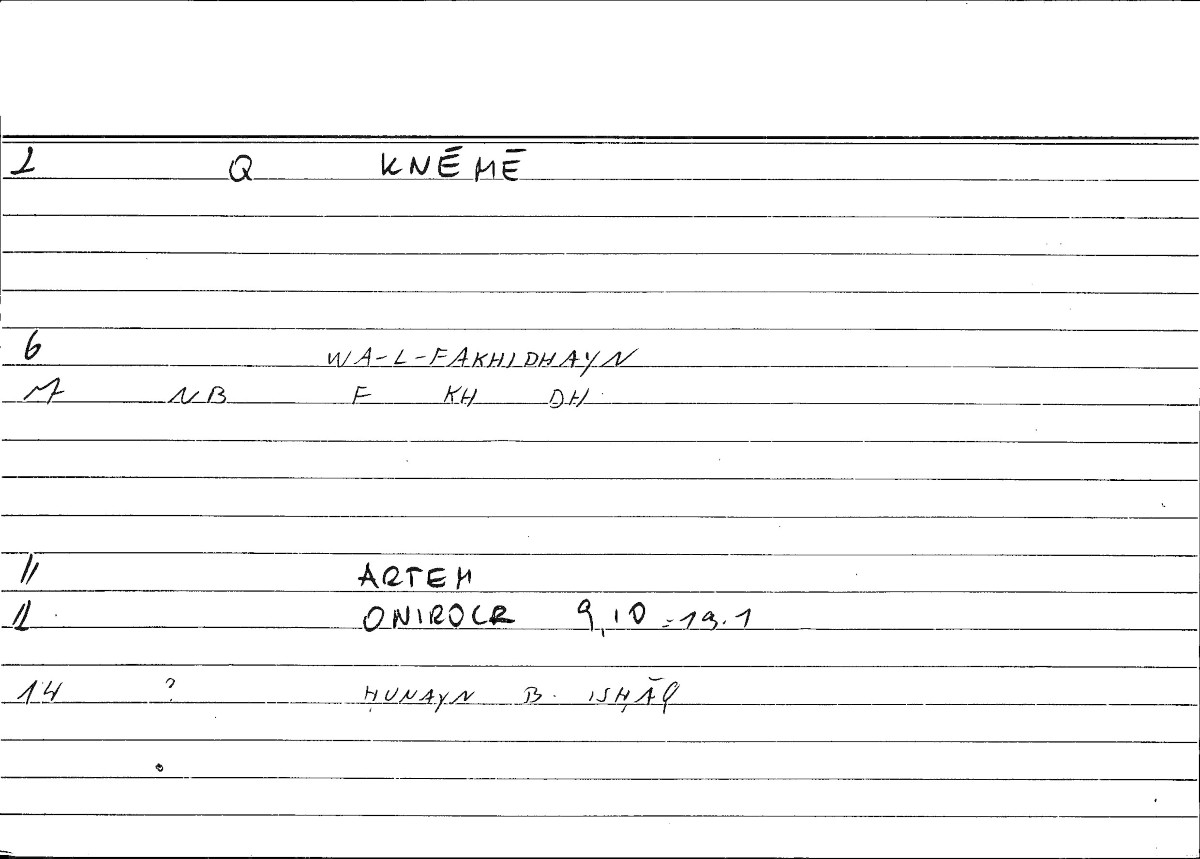 1 Q KNĒMĒ
6 WA-L-FAKHIDHAYN
M NB F KH DH
11 ARTEM
12 ONIROCR 9,10 = 19.1
14 ? ḤUNAYN B. ISḤĀQ